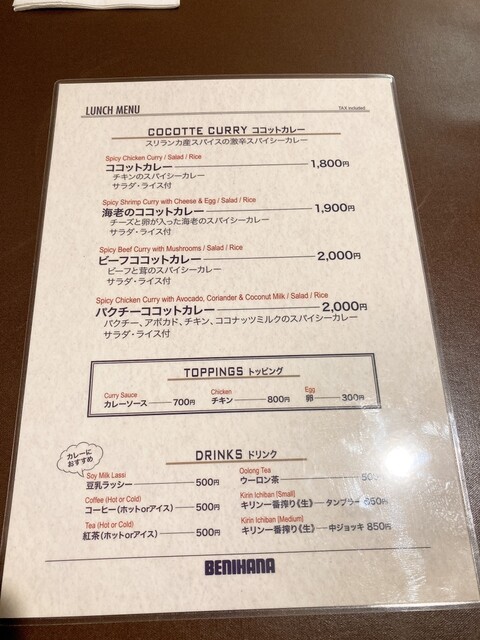 LUNCH MENU
TAX included
COCOTTE CURRY ココットカレー
スリランカ産スパイスの激辛スパイシーカレー
Spicy Chicken Curry / Salad / Rice
ココットカレー 1,800円
チキンのスパイシーカレー
サラダ・ライス付
Spicy Shrimp Curry with Cheese & Egg / Salad / Rice
海老のココットカレー 1,900円
チーズと卵が入った海老のスパイシーカレー
サラダ・ライス付
Spicy Beef Curry with Mushrooms / Salad / Rice
ビーフココットカレー 2,000円
ビーフと茸のスパイシーカレー
サラダ・ライス付
Spicy Chicken Curry with Avocado, Coriander & Coconut Milk / Salad / Rice
パクチーココットカレー 2,000円
パクチー、アボカド、チキン、ココナッツミルクのスパイシーカレー
サラダ・ライス付
TOPPINGS トッピング
Curry Sauce
カレーソース 700円
Chicken
チキン 800円
Egg
卵 300円
DRINKS ドリンク
カレーに
おすすめ
Soy Milk Lassi
豆乳ラッシー 500円
Coffee (Hot or Cold)
コーヒー(ホットorアイス) 500円
Tea (Hot or Cold)
紅茶(ホットorアイス) 500円
Oolong Tea
ウーロン茶
Kirin Ichiban [Small]
キリン一番搾り《生》 タンブラー 650円
Kirin Ichiban [Medium]
キリン一番搾り《生》 中ジョッキ 850円
BENIHANA